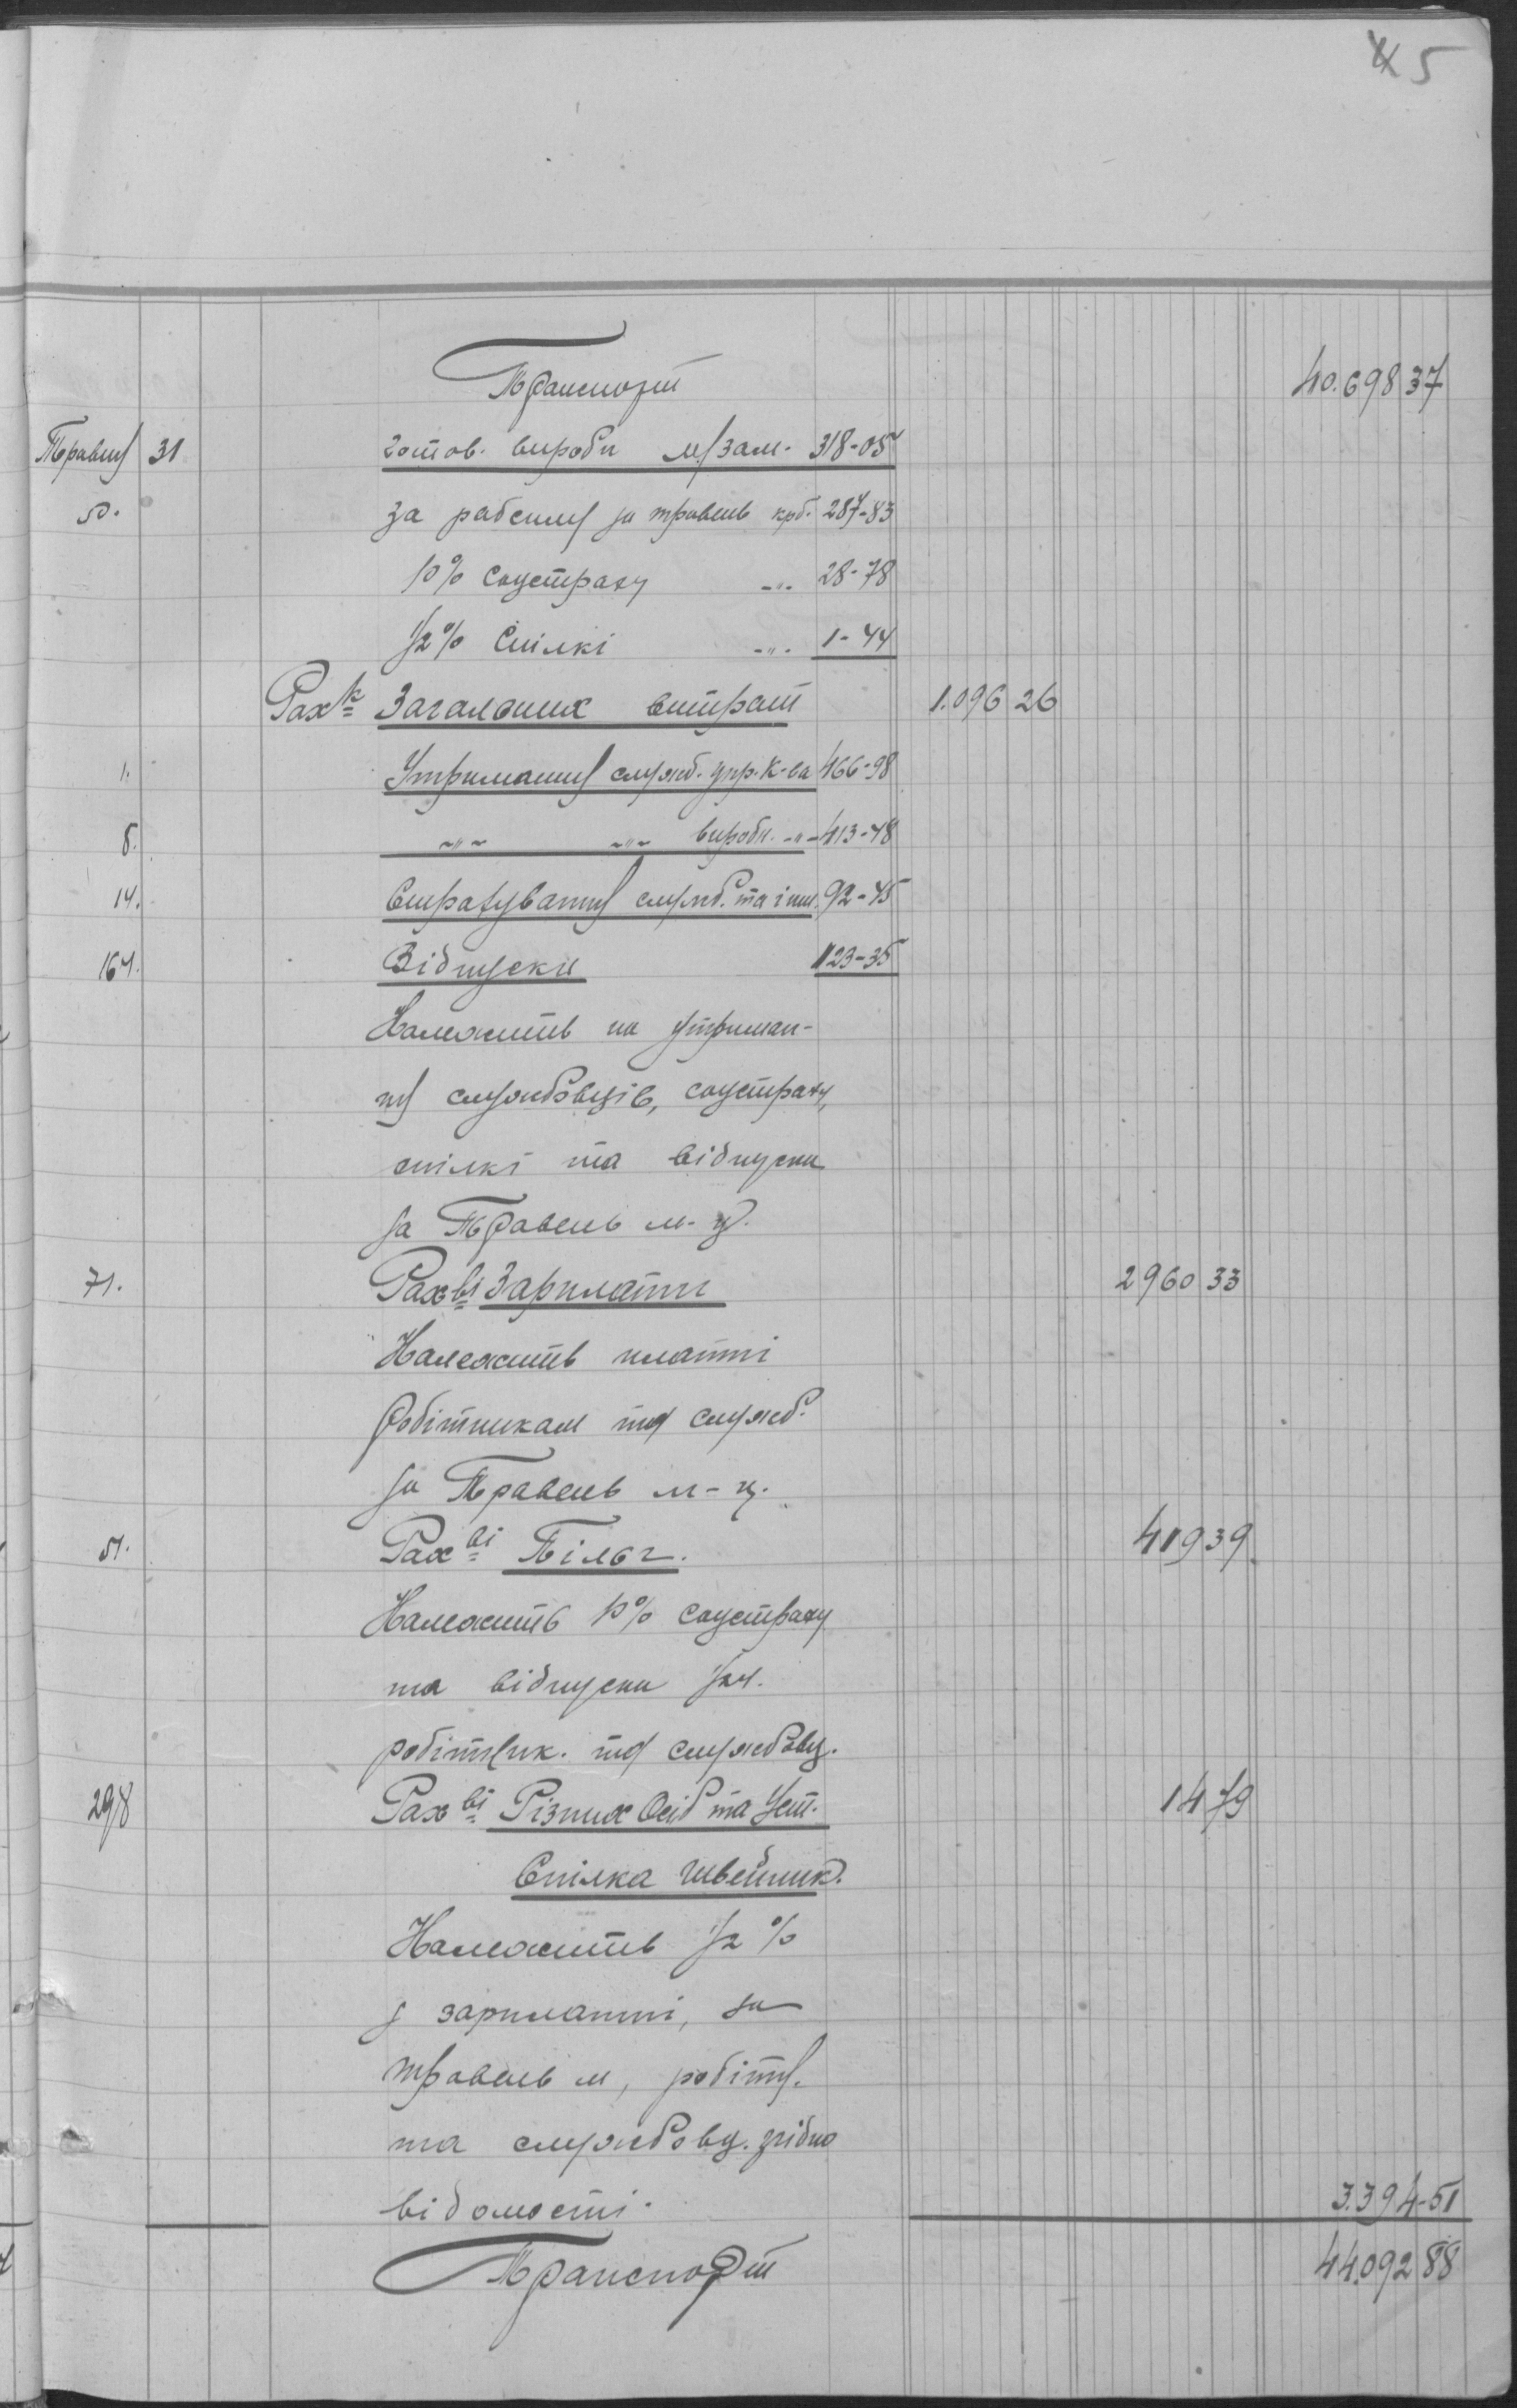 5
Транспорт 40.698 37
Травня 31 готов. вироби м/зам. 318-05
50. за рабсилу за травень крб. 287-83
10% соцстраху -"- 28-78
1/2% Спілкі -"- 1-44
Рах-к Загальних витрат 1.096 26
1. Утримання служб. упр. К-ва 466-98
8. -"- -"- виробн. -"- 413-48
14. Страхування служб. та інш. 92-45
164. Відпуски 123-35
Належить на утриман-
ня службовців, соцстраху,
спілкі та відпуски
за Травень м-ц.
71. Рах-ві Зарплати 2960 33
Належить платні
робітникам та служб.
за Травень м-ц.
51. Рах-ві Пільг. 419 39
Належить 10% соцстраху
та відпуски
робітник. та службовц.
298 Рах-ві Різних Осіб та Уст. 14 79
Спілка швейник.
Належить 1/2 %
з зарплатні, за
травень м, робітн.
та службовц. згідно
відомості. 3.394-51
Транспорт 44.092 88